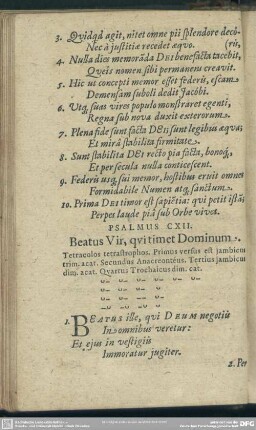 3. Quidqd agit, nitet omne pii splendore deco-
Nec à justitiæ recedet æqvo. (rii,
4. Nulla dies memorāda DEI benefacta tacebit,
Qveis nomen sibi permanens creavit.
5. Hic ut concepti memor esset fœderis, escam
Demensam soboli dedit Jacobi.
6. Utq, suas vires populo monstraret egenti,
Regna sub nova duxit exterorum.
7. Plena fide sunt facta DEI sunt legibus æqva;
Et mirâ stabilita firmitate.
8. Sunt stabilita DEI recto pia facta, bonoq,
Et per secula nulla conticescent.
9. Fœderis usq, sui memor, hostibus eruit omnes
Formidabile Numen atq, sanctum.
10. Prima DEI timor est sapiētia: qui petit istā,
Perpes laude piâ sub Orbe vivet.
PSALMUS CXII.
Beatus Vir, qvi timet Dominum.
Tetracolos tetrastrophos. Primus versus est jambicus
trim. acat. Secundus Anacreonteus. Tertius jambicus
dim. acat. Qvartus Trochaicus dim. cat.
1. BEATUS iste, qvi DEUM negotiis
In omnibus veretur:
Et ejus in vestigiis
Immoratur jugiter.
2. Per